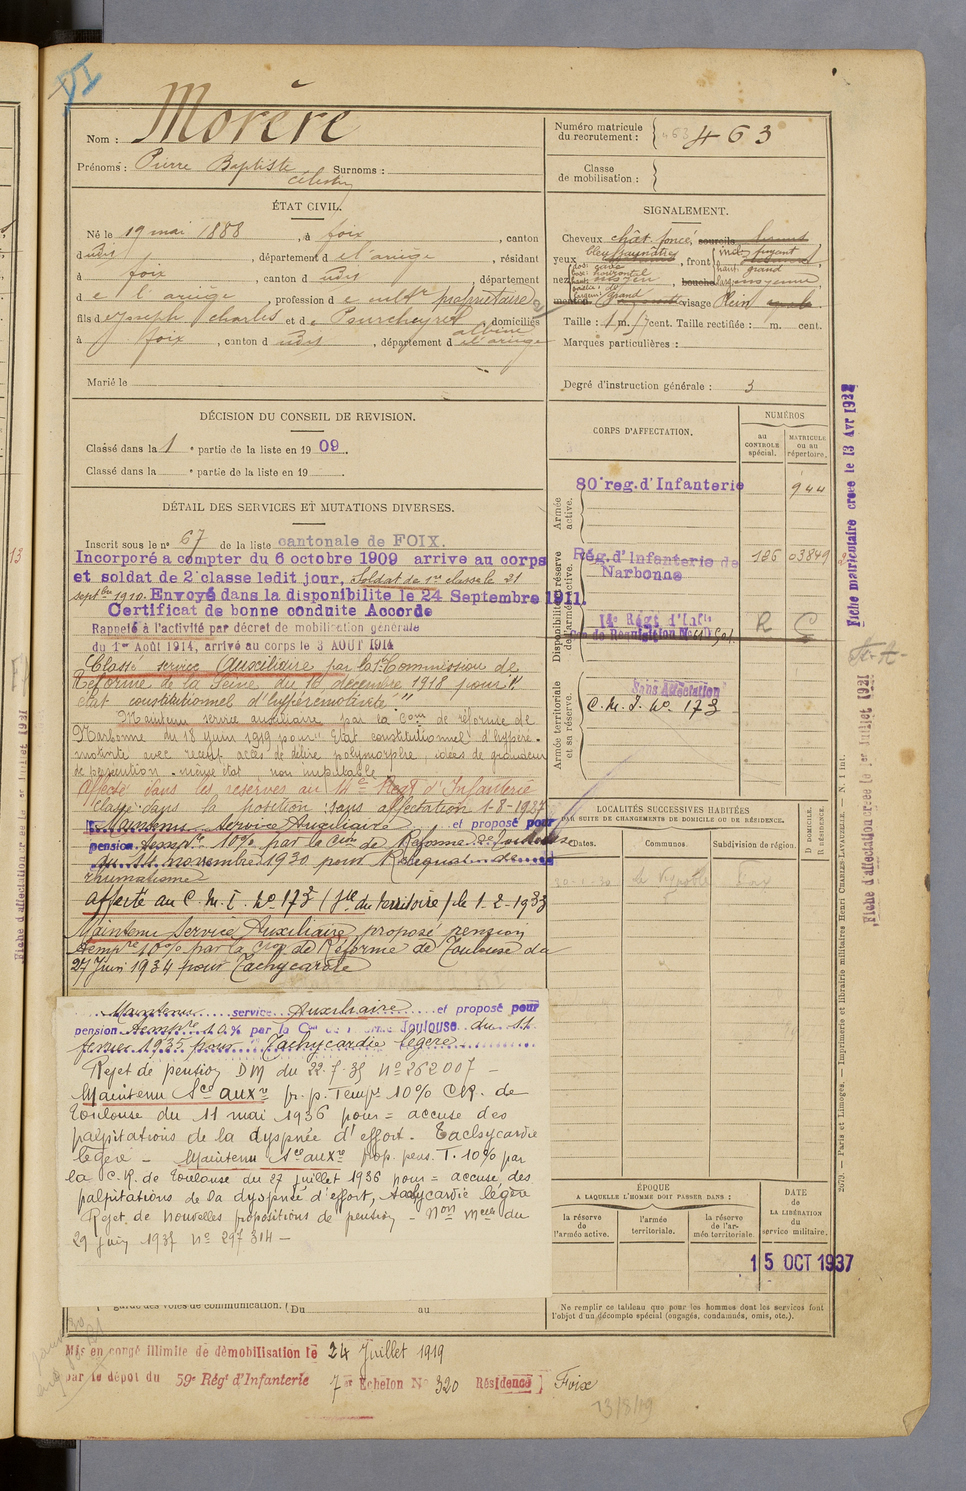 VI
Nom : Morère
Prénoms : Pierre Baptiste Surnoms :
Célestin
ÉTAT CIVIL.
Né le 19 mai 1888, à foix, canton
dudit, département d e l'ariège, résidant
à foix, canton d udit département
d e l'ariège, profession d e propriétaire
fils d e Joseph Charles et d e Pourcheyrol, domiciliés
albine
à foix, canton d udit, département d e l'ariège
Marié le
DÉCISION DU CONSEIL DE REVISION.
Classé dans la 1e partie de la liste en 1909.
Classé dans la e partie de la liste en 19 .
DÉTAIL DES SERVICES ET MUTATIONS DIVERSES.
Inscrit sous le no 67 de la liste cantonale de FOIX.
Incorporé à compter du 6 octobre 1909 arrive au corps
et soldat de 2e classe ledit jour, Soldat de 1re classe le 21
septbre 1910. Envoyé dans la disponibilité le 24 Septembre 1911.
Certificat de bonne conduite Accordé
Rappelé à l'activité par décret de mobilisation générale
du 1er Août 1914, arrivé au corps le 3 AOUT 1914
Classé service Auxiliaire par la Commission de
Réforme de la Seine du 16 décembre 1918 pour "
état constitutionnel d'hyperémotivité "
Maintenu service auxiliaire par la Com de réforme de
Narbonne du 18 juin 1919 pour "Etat constitutionnel d'hypéré-
motivité avec récent accès de délire polymorphe, idées de grandeur
de persécution - même état non imputable
Affecté dans les réserves au 14e Regt d'Infanterie
Classé dans la position sans affectation 1-8-1927
Maintenu Service Auxiliaire et proposé pour
pension tempre 10% par la Cion de Réforme de Toulouse
du 14 novembre 1930 pour Reliquat de
rhumatismes
affecté au C. M. I. No 173 (Sce du territoire) le 1-2-1933
Maintenu Service Auxiliaire proposé pension
tempre 10% par la Cion de Réforme de Toulouse du
27 Juin 1934 pour Tachycardie
Maintenu service Auxiliaire et proposé pour
pension tempre 10% par la Cion de Réforme Toulouse du 11
fevrier 1935 pour Tachycardie légère
Rejet de pension DM du 22.7.35 No 262007 -
Maintenu Sce auxre pr. p. Tempre 10% C.R. de
Toulouse du 11 mai 1936 pour = accuse des
palpitations de la dyspnée d'effort. Tachycardie
légère - Maintenu Sce auxre prop. pens. T. 10% par
la C.R. de Toulouse du 27 juillet 1936 pour = accuse des
palpitations de la dyspnée d'effort, tachycardie légère
Rejet de nouvelles propositions de pension - Don Melle du
29 juin 1937 No 297314 -
garde des voies de communication. (Du au
Mis en congé illimité de démobilisation le 24 Juillet 1919
par le dépôt du 59e Régt d'Infanterie 7e Echelon No 320 Résidence] Foix
13/8/19
Numéro matricule
du recrutement : 463 463
Classe
de mobilisation :
SIGNALEMENT.
Cheveux chât foncé, sourcils
yeux bleu jaunâtre, front incl. fuyant
haut. grand
larg. moyenne
nez dos cave
base horizontal
haut. moyen
bouche
menton grand visage Plein
Taille : 1 m. 57 cent. Taille rectifiée : m. cent.
Marques particulières :
Degré d'instruction générale : 3
CORPS D'AFFECTATION.
NUMÉROS
au CONTROLE spécial.
MATRICULE ou au répertoire.
Armée active.
80e reg. d'Infanterie 944
Disponibilité et réserve de l'armée active.
Rég. d'Infanterie de 126 03849
Narbonne
14e Régt d'Infie R C
Armée territoriale et sa réserve.
Sans Affectation
C. M. I. No 173
LOCALITÉS SUCCESSIVES HABITÉES
PAR SUITE DE CHANGEMENTS DE DOMICILE OU DE RÉSIDENCE.
Dates. Communes. Subdivision de région. D DOMICILE. R RÉSIDENCE.
Foix
ÉPOQUE
A LAQUELLE L'HOMME DOIT PASSER DANS :
la réserve de l'armée active.
l'armée territoriale.
la réserve de l'armée territoriale.
DATE
de
LA LIBÉRATION
du
service militaire.
15 OCT 1937
Ne remplir ce tableau que pour les hommes dont les services font
l'objet d'un décompte spécial (engagés, condamnés, omis, etc.).
Fiche matriculaire créée le 13 Avr 1932
Fiche d'affectation créée le 1er Juillet 1931
2679. — Paris et Limoges. — Imprimerie et librairie militaires Henri CHARLES-LAVAUZELLE. — N. 1 int.
13
Fiche d'affectation créée le 1er Juillet 1931